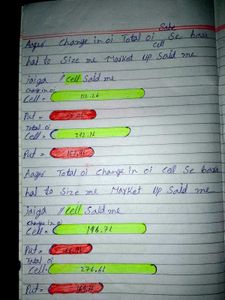 Sabse
Agar Change in oi Total oi Se bara
cell
hai to Size me Market Up Said me
jaiga // Cell Said me
Change in oi
Cell =
Put =
Total oi
Cell =
Put =
Agar Total oi Change in oi Cell Se bara
hai to Size me Market Up Said me
jaiga // Cell Said me
Change in oi
Cell = 196.71
Put =
Total oi
Cell = 276.61
Put =